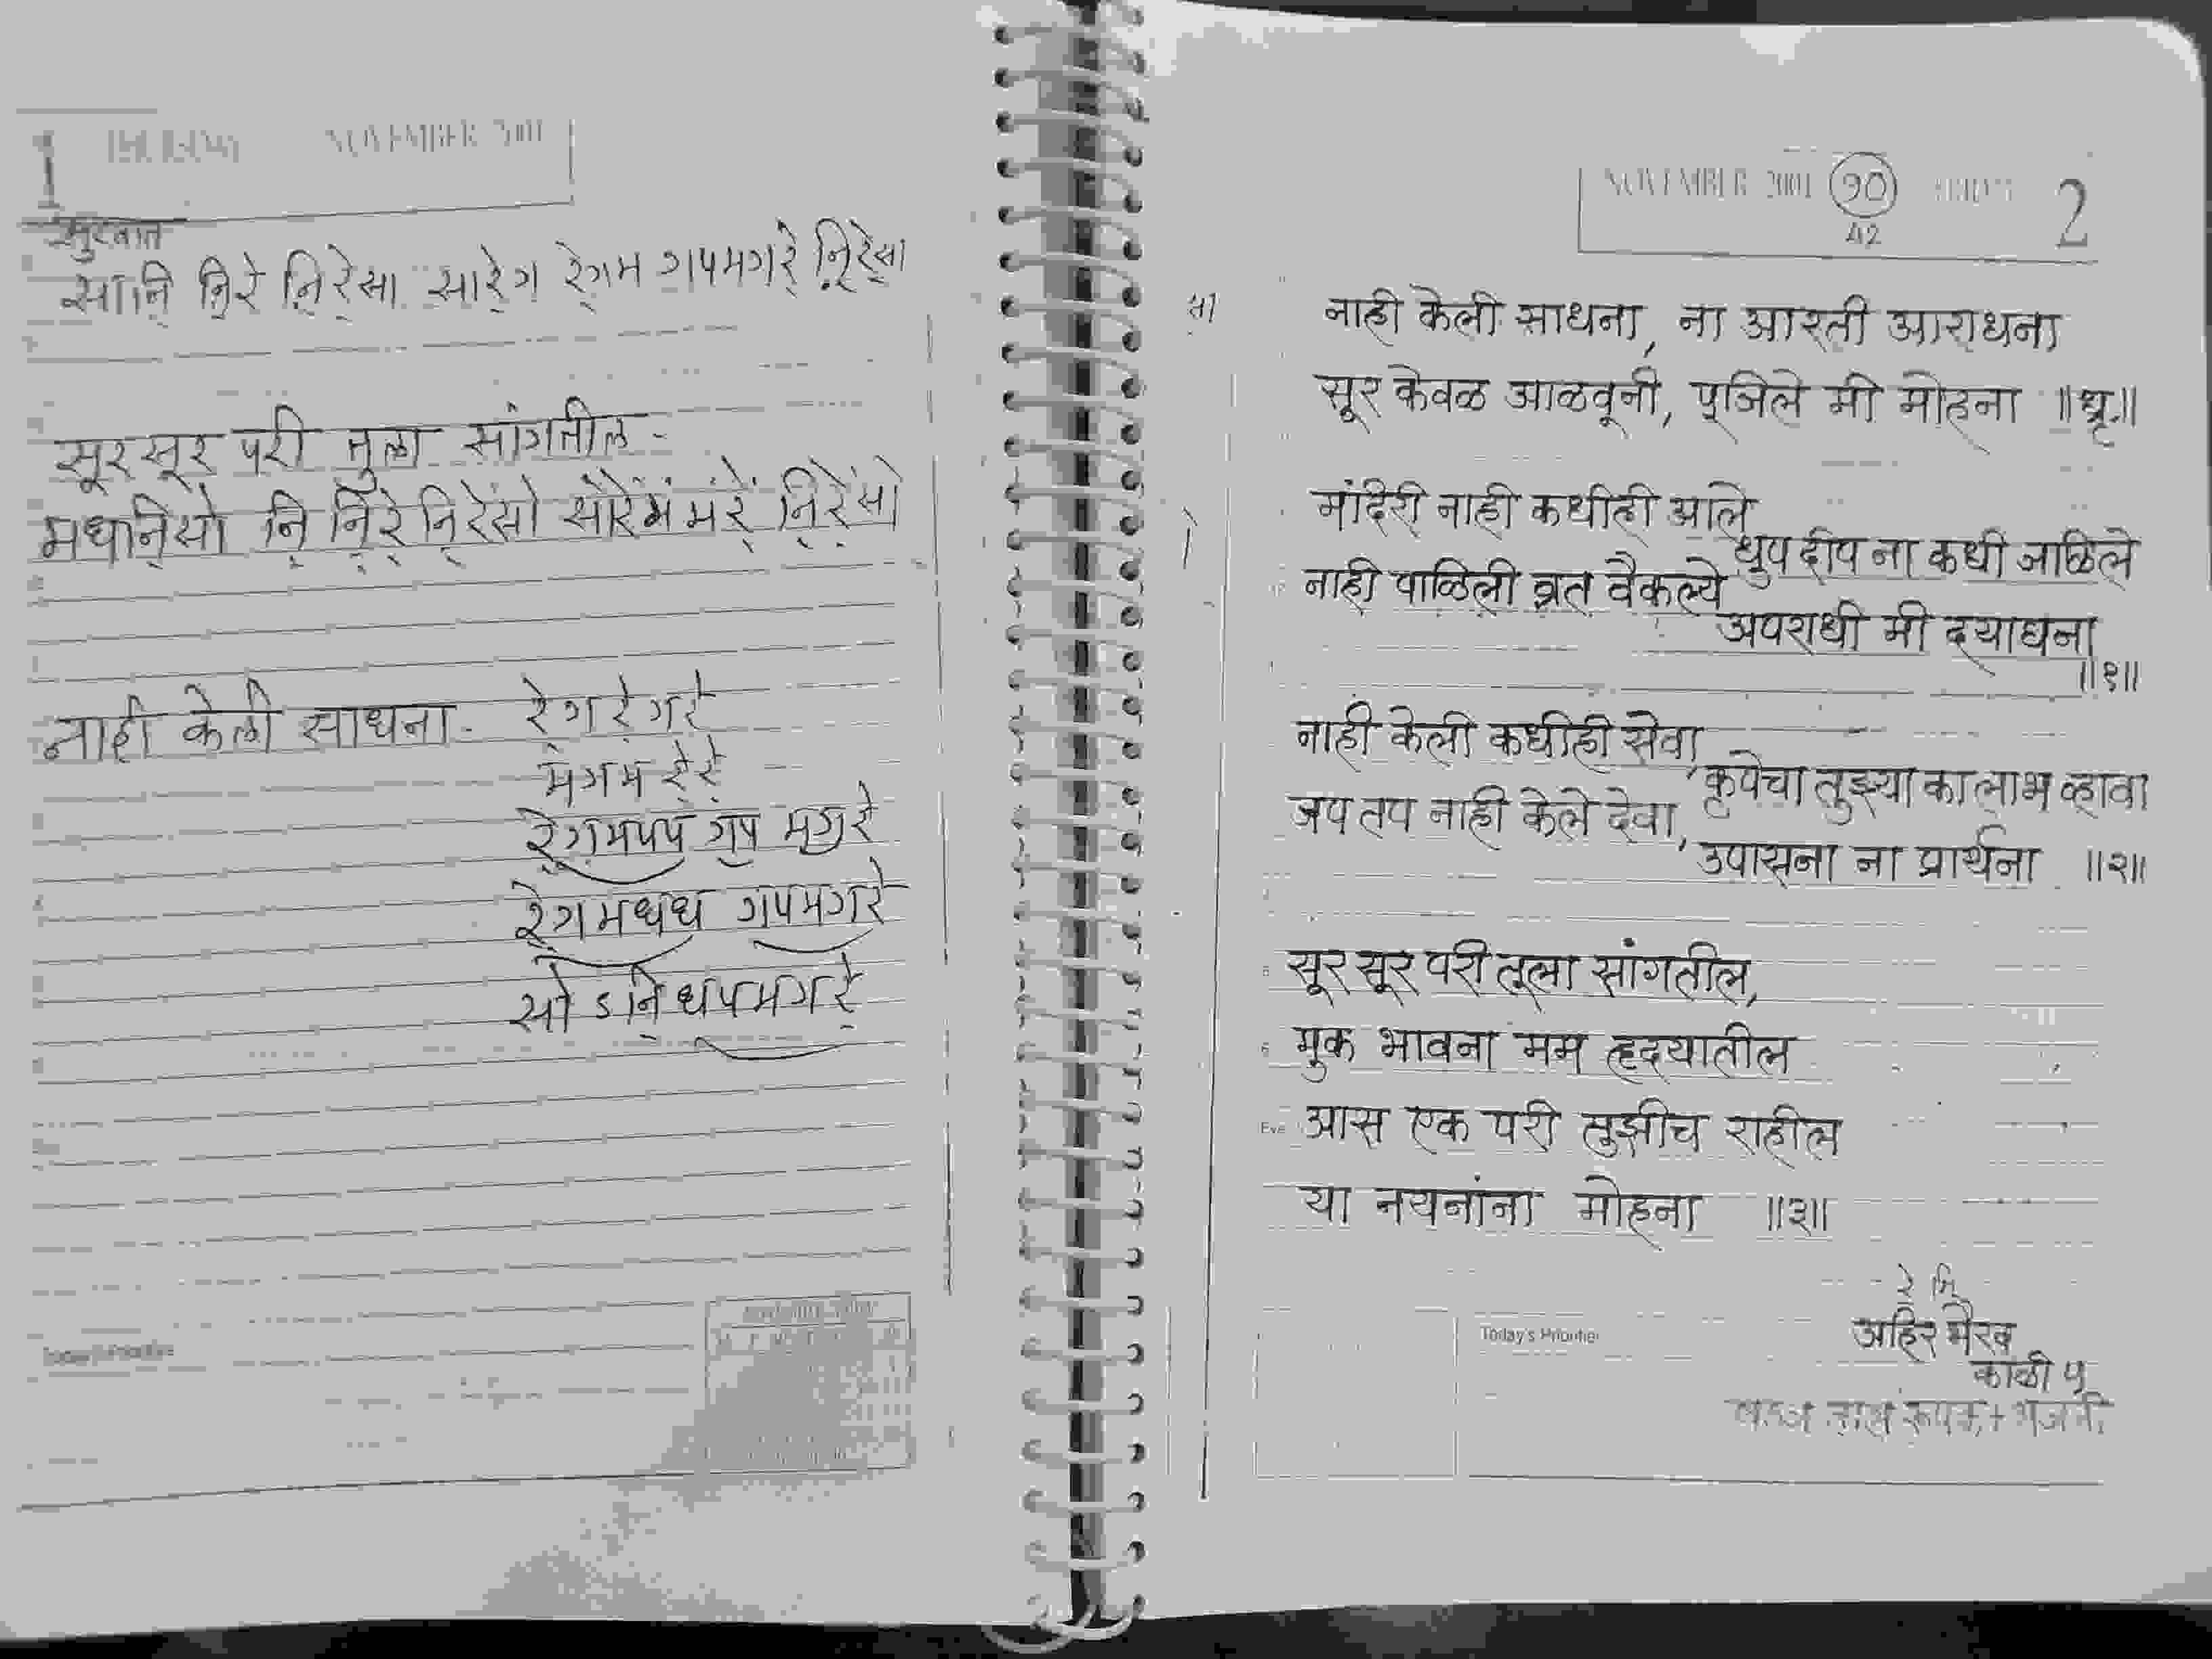 1 THURSDAY NOVEMBER 2001
सुरवात
सानि॒ नि॒रे॒ नि॒रे॒सा सारे॒ग रे॒गम गपमगरे॒ नि॒रे॒सा
सूर सूर परी तुला सांगतील -
मधनि॒सां नि॒ नि॒रें॒ नि॒रें॒सां सांरें॒मं मंरें॒ नि॒रें॒सां
नाही केली साधना - रे॒ग रे॒गरे॒
मगम रे॒रे॒
रे॒गमपप गप मगरे॒
रे॒गमधध गपमगरे॒
सां ऽ नि॒धपमगरे॒
NOVEMBER 2001 १० FRIDAY 2
42
सा
नाही केली साधना, ना आरती आराधना
सूर केवळ आळवूनी, पूजिले मी मोहना ॥धृ.॥
मंदिरी नाही कधीही आले
धुप दीप ना कधी जाळिले
नाही पाळिली व्रत वैकल्ये
अपराधी मी दयाघना
॥१॥
नाही केली कधीही सेवा,
कृपेचा तुझ्या का लाभ व्हावा
जप तप नाही केले देवा,
उपासना ना प्रार्थना ॥२॥
सूर सूर परी तूला सांगतील,
मुक भावना मम हृदयातील
Eve आस एक परी तुझीच राहील
या नयनांना मोहना ॥३॥
रे॒ नि॒
अहिर भैरव
Today's Priorities
काळी ५
रूपक + भजनी
Today's Priorities